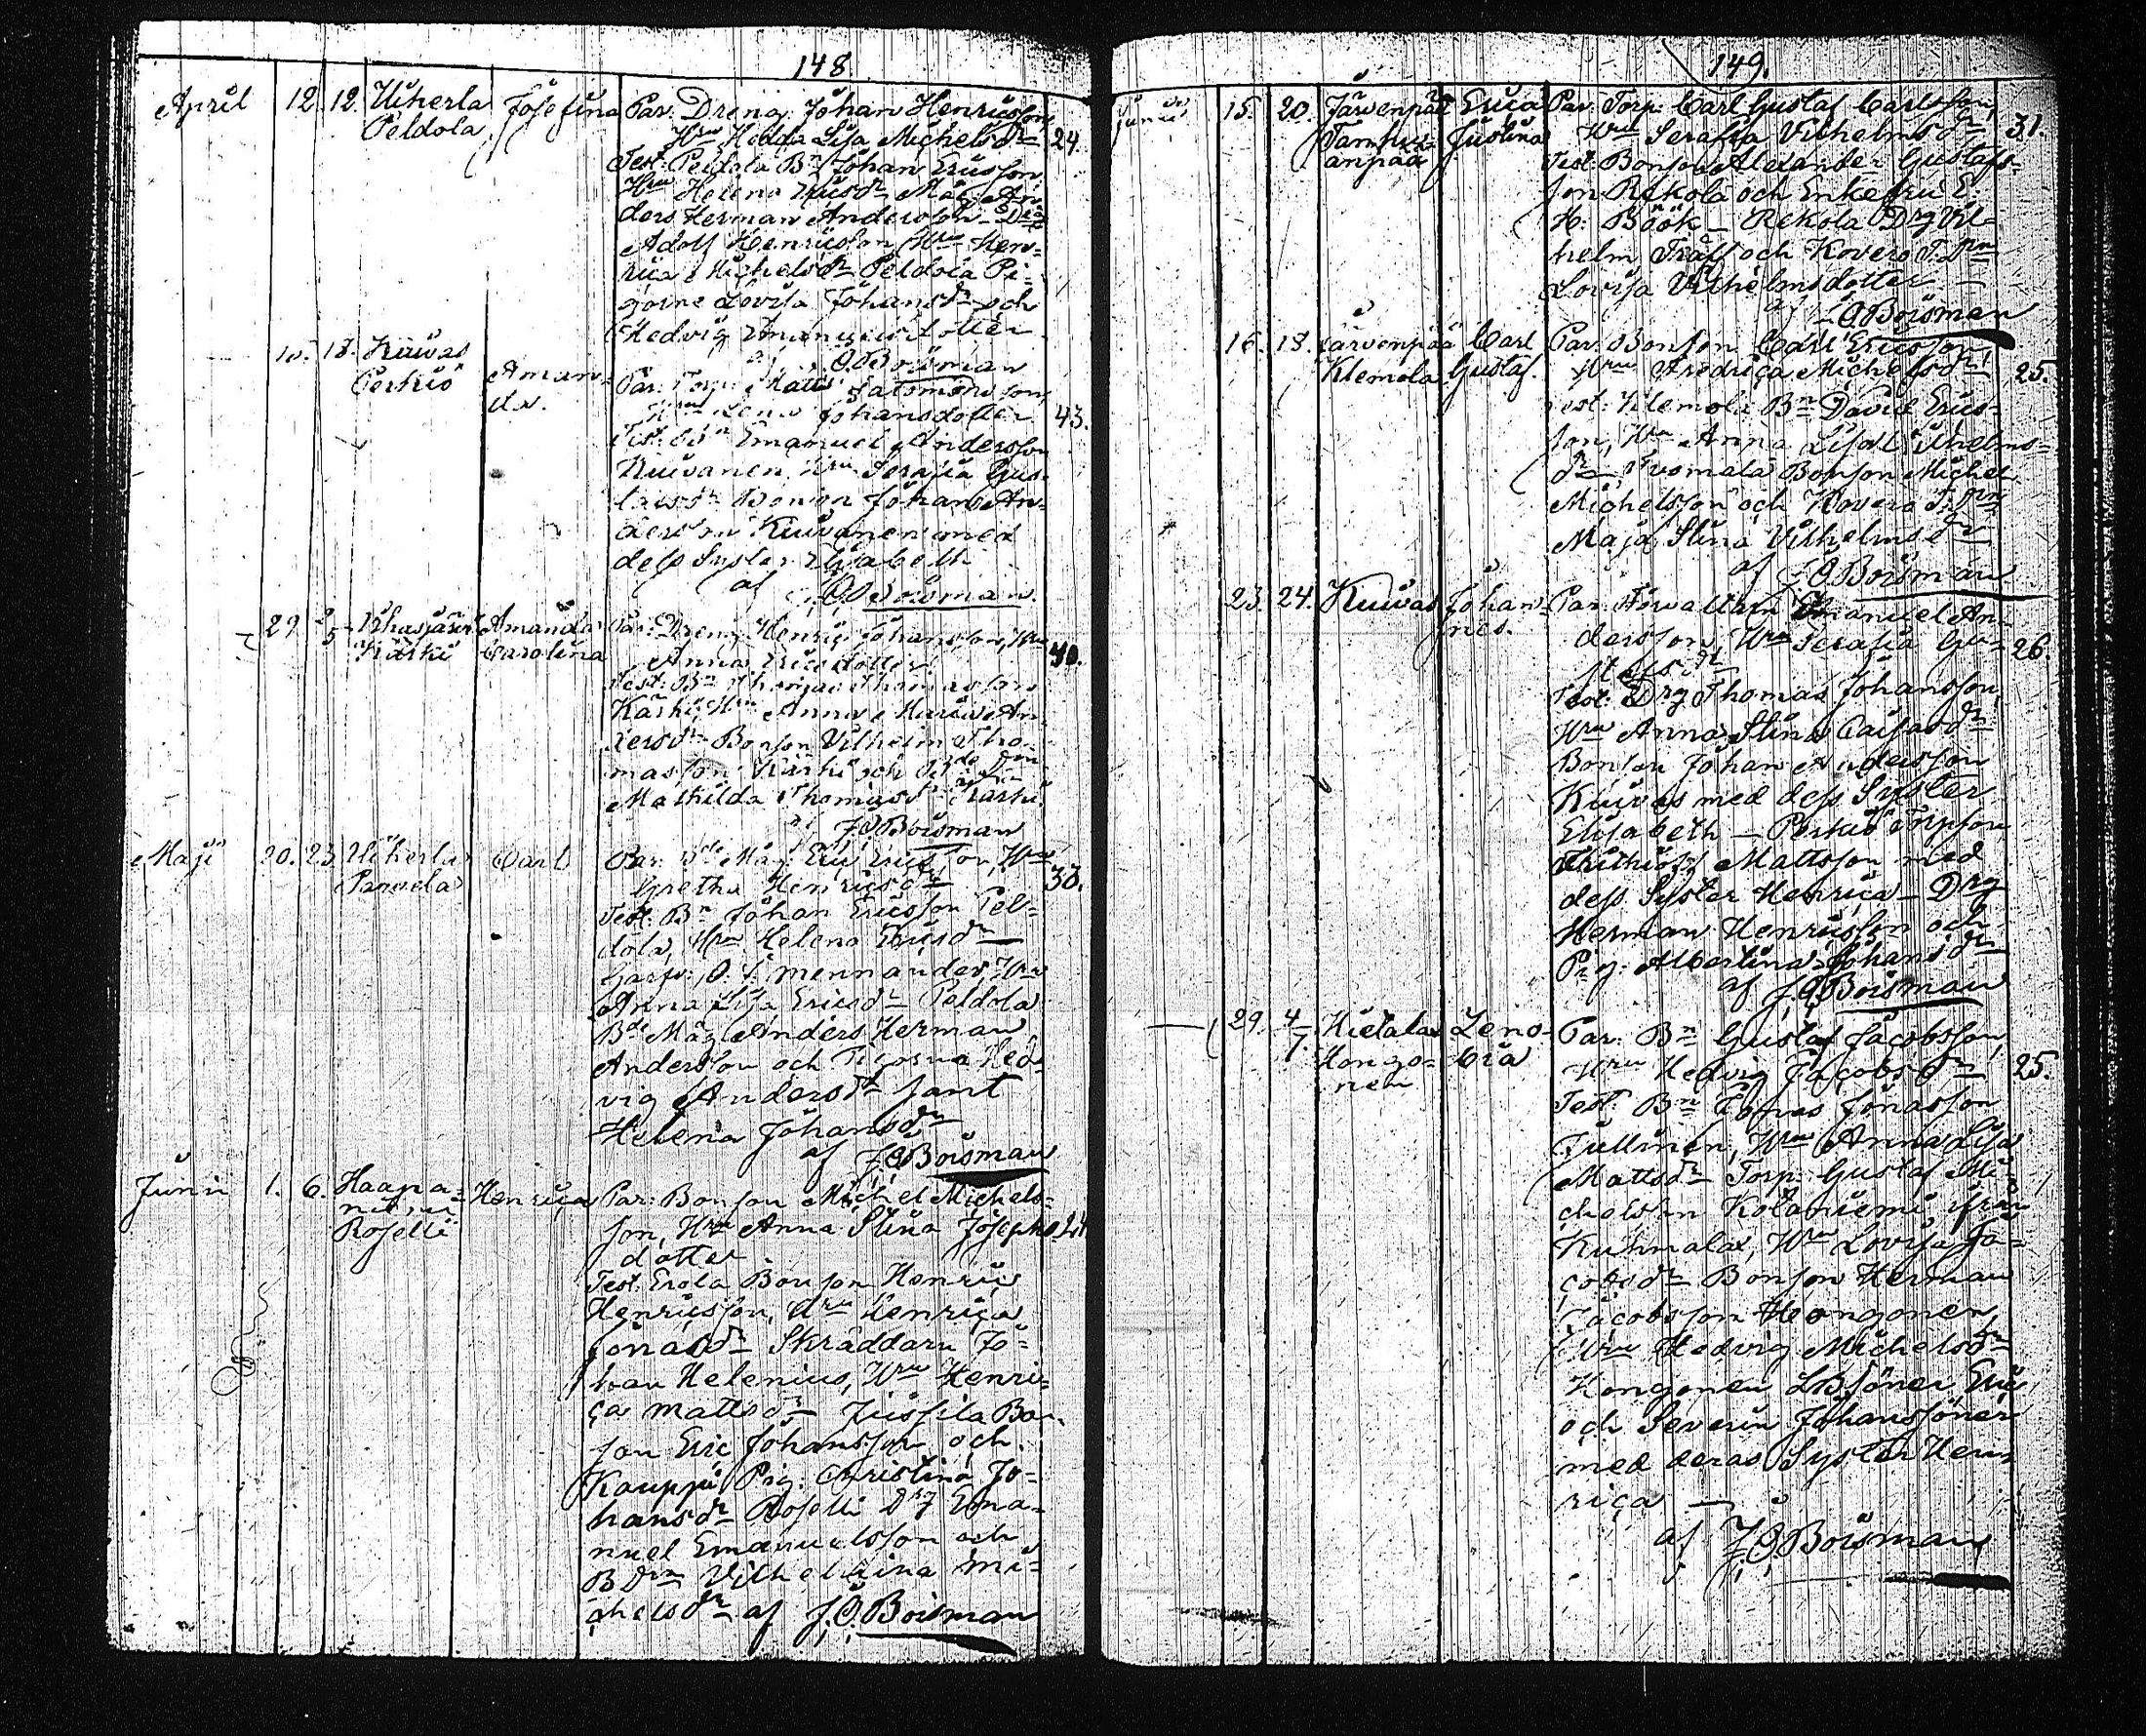 148
April 12. 12. Uikerla Josefina Par. Dreng Johan Henricsson,
Peldola Hru Hedda Lisa Michelsdr 24.
Test: Peldola Bn Johan Ericsson,
Hru Helena Ericsdr Måg An-
ders Herman Andersson Drg
Adolf Henricsson Hru Hen-
rica Michelsdr Peldola Pi-
gorne Lovisa Johansdr och
Hedvig Emanuelsdotter
O Boisman
18. Kuivas Aman-
Perkiö da. Par: Torp: Matts Salomonsson,
Hru Lena Johansdotter 43.
Test: Bn Emanuel Andersson
Kuivanen, Hru Serafia Gus-
tafsdr Bonson Johan An-
dersson Kuivanen med
dess Syster Elisabeth
af J.O. Boisman.
29 2/5 Amanda Par: Dreng Henric Johansson, Hru
Kärki Carolina Anna Ericsdotter 40.
Test: Bn Thomas Thomasson
Kärki, Hru Anna Maria An-
dersdr Bonson Vilhelm Tho-
masson Kärki och
Mathilda Thomasdr Kärki
af J.O Boisman
Maji 20. 23. Uikerla Carl Par: Bde Måg: Eric Ericsson, Hru
Parvela Gretha Henricsdr 38.
Test: Bn Johan Ericsson Pel-
dola, Hru Helena Ericsdr
Garfv: O. Mennander, Hru
Anna Lisa Ericsdr Peldola
Bde Måg Anders Herman
Andersson och Pigorna Hed-
vig Andersdr samt
Helena Johansdr
af J.O Boisman
Junii 1. 6. Haapa- Henrica Par: Bonson Michel Michels-
Roselli son, Hru Anna Stina Josephs
dotter
Test: Erola Bonson Henric
Henricsson, Hru Henrica
Jonasdr Skräddarn Jo-
han Helenius, Hru Henri-
ca Mattsdr Jussila Bon-
son Eric Johansson och
Kauppi Pig: Christina Jo-
hansdr Roselli Drg Ema-
nuel Emanuelsson och
Bdrn Vilhelmina Mi-
chelsdr af J.O. Boisman
149.
Junii 15. 20. Järvenpää Erica Par. Torp: Carl Gustaf Carlsson,
Justina Hru Serafia Vilhelmsdr 31.
anpää Test: Bonson Alexander Gustafs-
son Rekola och Enkefru E.
H. Böök - Rekola Drg Vil-
helm Träff och Kovero T. Drn
Lovisa Vilhelmsdotter -
af J.O Boisman
16. 18. Järvenpää Carl Par. Bonson Carl Ericsson
Klemola Gustaf. Hru Fredrica Michelsdr 25.
Test: Klemola Bn David Erics-
son, Hru Anna Lisa Vilhelms-
dr Tuomala Bonson Michel
Michelsson och Kovero T. Drn
Maja Stina Vilhelmsdr
af J.O Boisman
23. 24. Kuivas Johan- Par. Förvaltarn Emanuel An-
nes. dersson, Hru Serafia Gu- 26.
stafsdr
Test: Drg Thomas Johansson,
Hru Anna Stina Caisasdr
Bonson Johan Andersson
Kuivas med dess Syster
Elisabeth - Perkiö Torpson
Frithiof Mattsson med
dess Syster Henrica - Drg
Herman Henricsson och
Pig: Albertina Johansdr
af J.O Boisman
29. 4/7 Hietala Leno- Par: Bn Gustaf Jacobsson,
Hongo- bia Hru Hedvig Jacobsdr 25.
nen Test: Bn Jonasson
Jullinen, Hru Anna Lisa
Mattsdr Torp: Gustaf Mi-
chelsson Kolaniemi ifrån
Kuhmalax, Hru Lovisa Ja-
cobsdr Bonson Herman
Jacobsson Hongonen,
Hru Hedvig Michelsdr
Hongonen LBsöner Eric
och Severin Johanssöner
med deras Syster Hen-
rica -
af J.O. Boisman